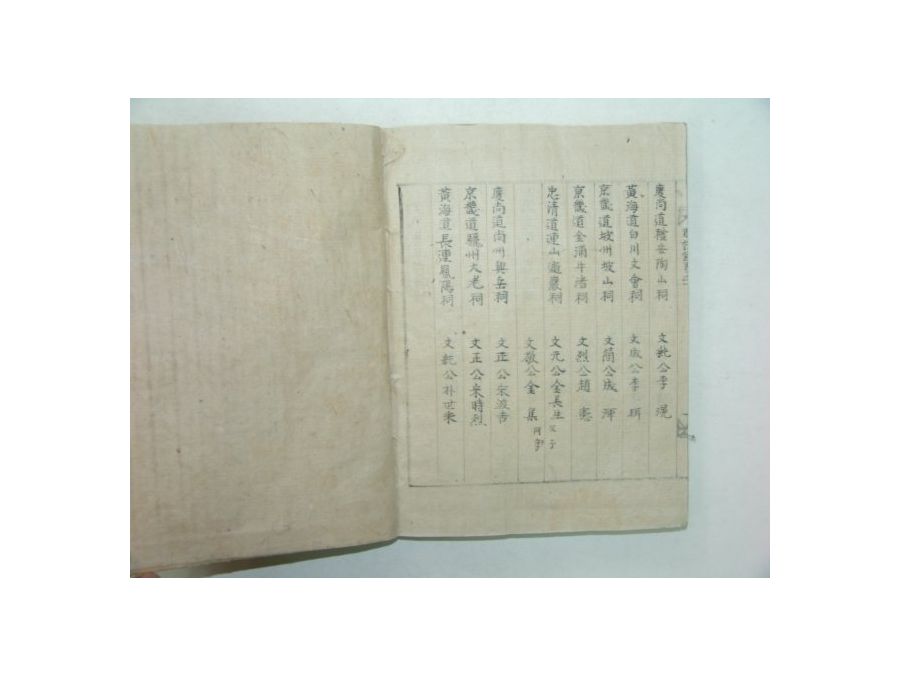 慶尚道禮安陶山祠 文純公李 滉
黃海道白川文會祠 文成公李 珥
京畿道坡州坡山祠 文簡公成 渾
京畿道金浦牛渚祠 文烈公趙 憲
忠清道連山遯巖祠 文元公金長生 父子
文敬公金 集 同享
慶尚道尚州興岳祠 文正公宋浚吉
京畿道驪州大老祠 文正公宋時烈
黃海道長淵鳳陽祠 文純公朴世采